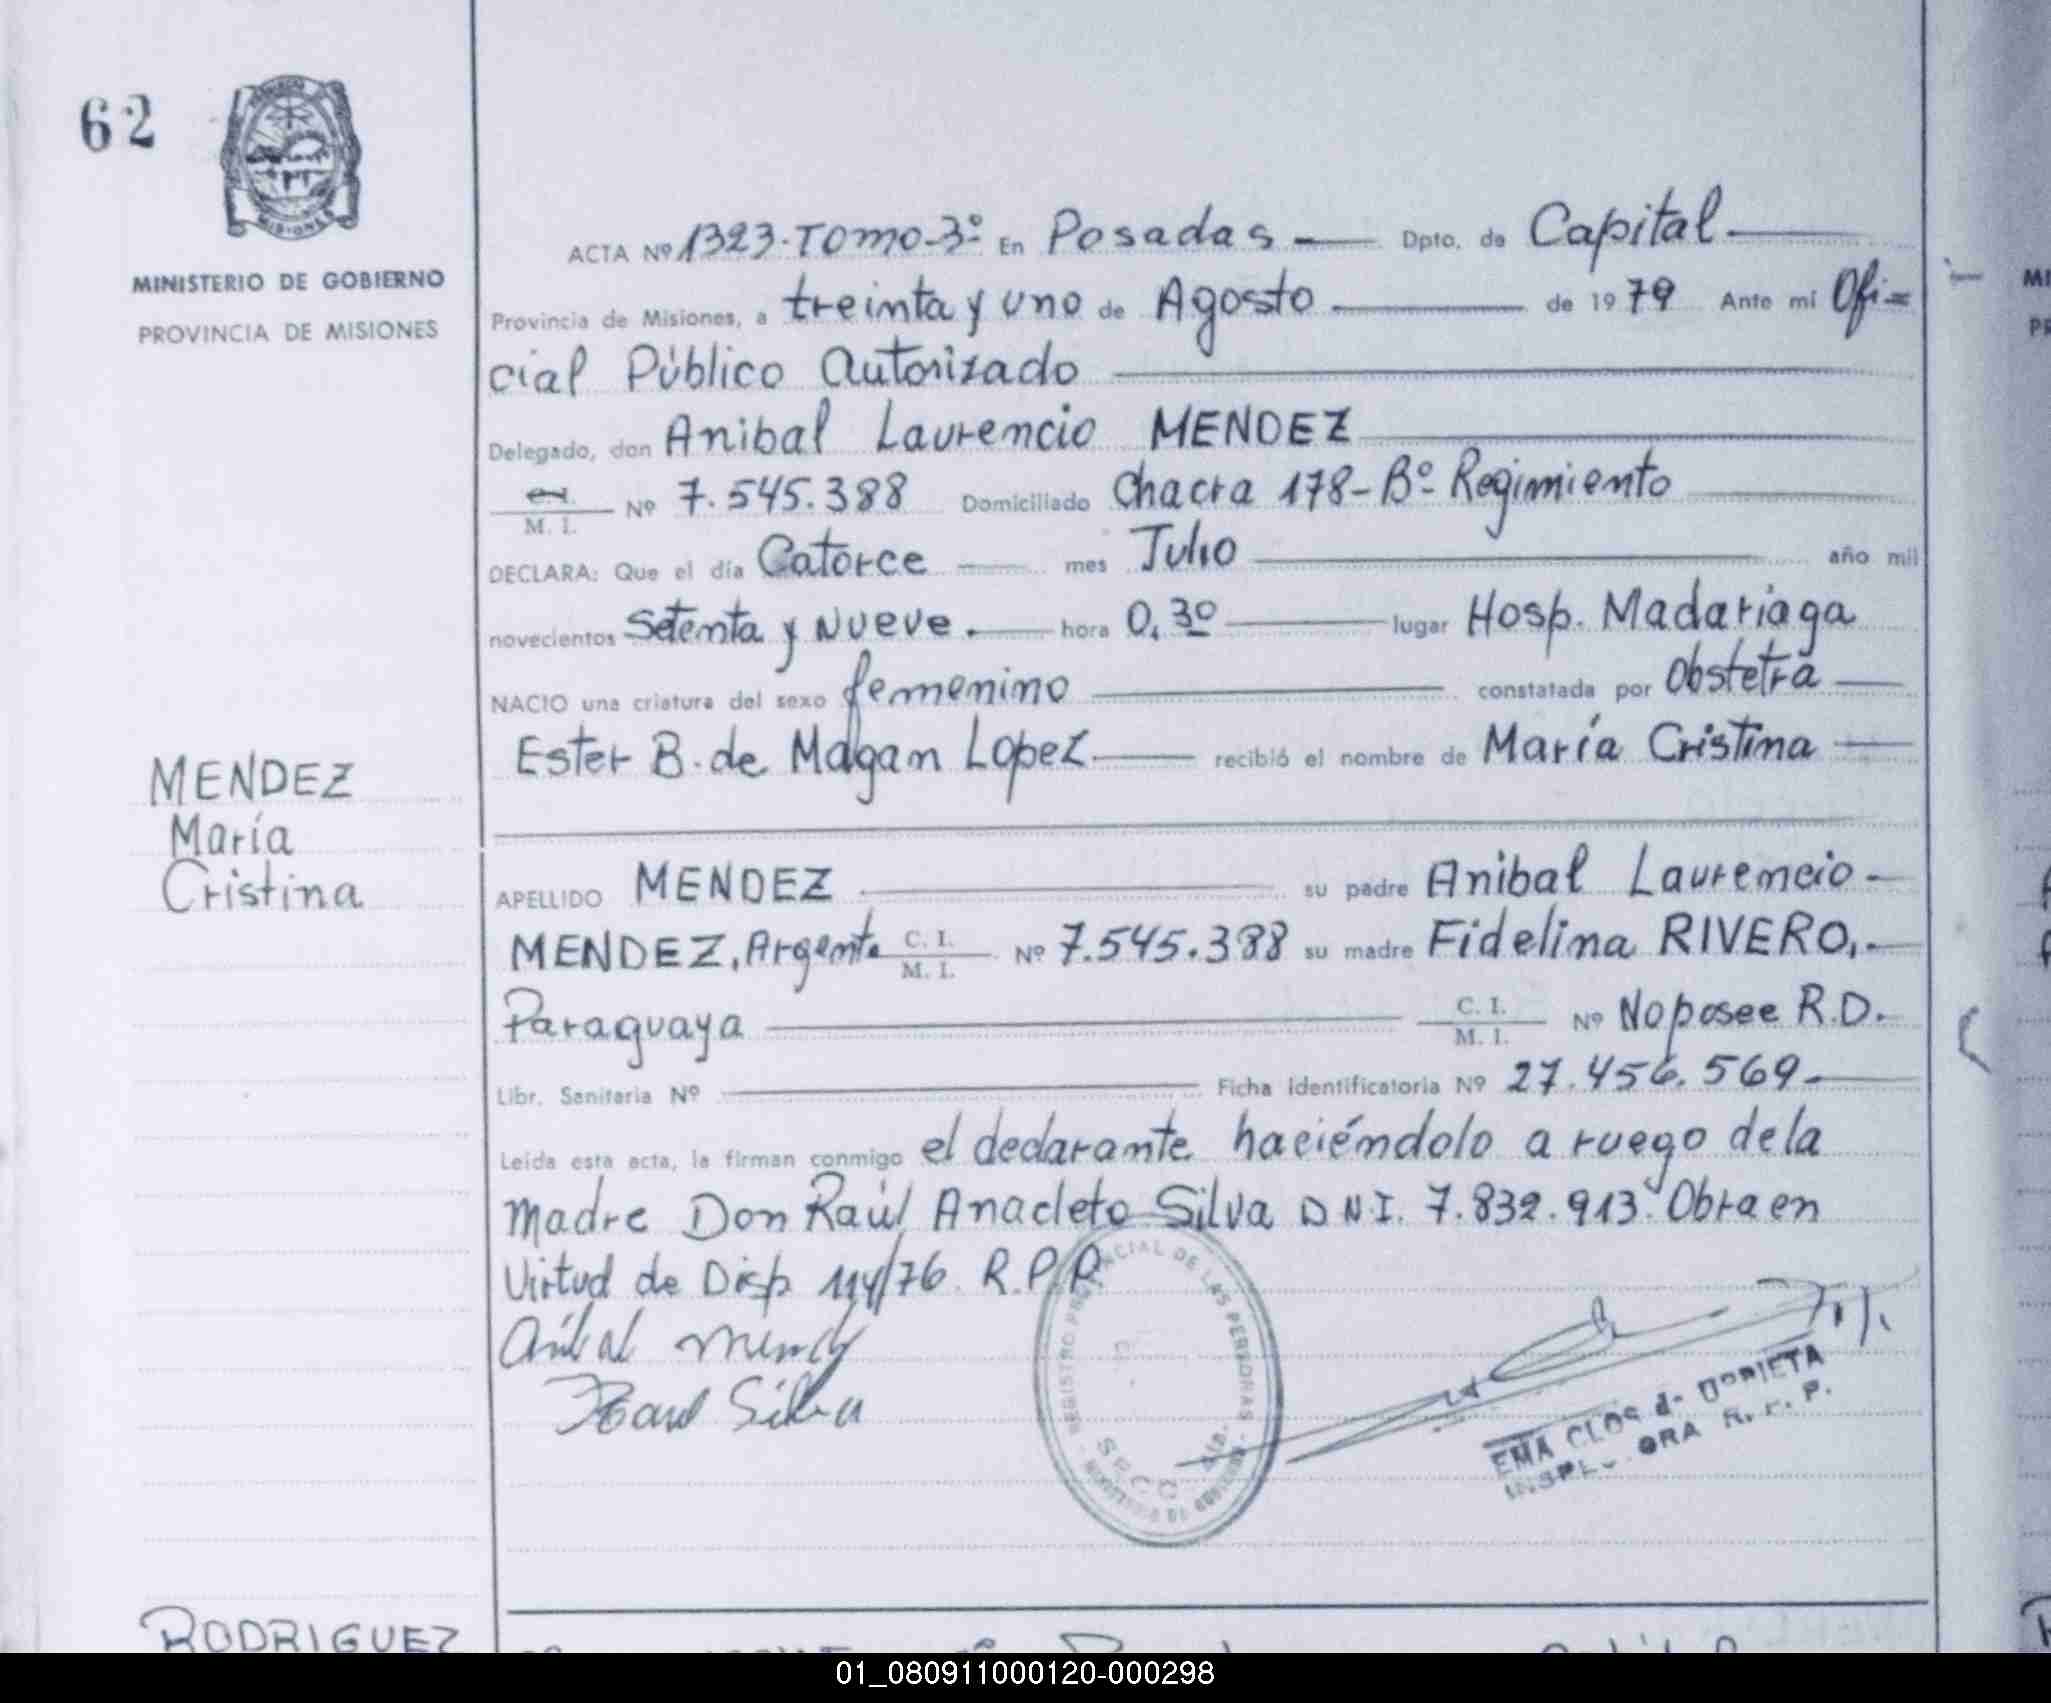 62
MISIONES
MINISTERIO DE GOBIERNO
PROVINCIA DE MISIONES
ACTA Nº 1323-TOMO-3º En Posadas — Dpto. de Capital —
Provincia de Misiones, a treinta y uno de Agosto — de 1979 Ante mí Ofi=
cial Público Autorizado —
Delegado, don Anibal Laurencio MENDEZ
C.I. / M. I. Nº 7.545.388 Domiciliado Chacra 178-Bº Regimiento
DECLARA: Que el día Catorce — mes Julio — año mil
novecientos Setenta y Nueve. — hora 0,30 — lugar Hosp. Madariaga
NACIO una criatura del sexo femenino — constatada por Obstetra —
Ester B. de Magan Lopez — recibió el nombre de María Cristina —
MENDEZ
María
Cristina
APELLIDO MENDEZ — su padre Anibal Laurencio -
MENDEZ, Argent. C. I. / M. I. Nº 7.545.388 su madre Fidelina RIVERO,.-
Paraguaya — C. I. / M. I. Nº No posee R.D.
Libr. Sanitaria Nº — Ficha Identificatoria Nº 27.456.569.-
Leída esta acta, la firman conmigo el declarante haciéndolo a ruego de la
madre Don Raúl Anacleto Silva D.N.I. 7.832.913. Obra en
Virtud de Disp. 114/76. R.P.P.
Anibal Mendez
Raul Silva
REGISTRO PROVINCIAL DE LAS PERSONAS
EMA CLOS de
R. P. P.
RODRIGUEZ
01_080911000120-000298